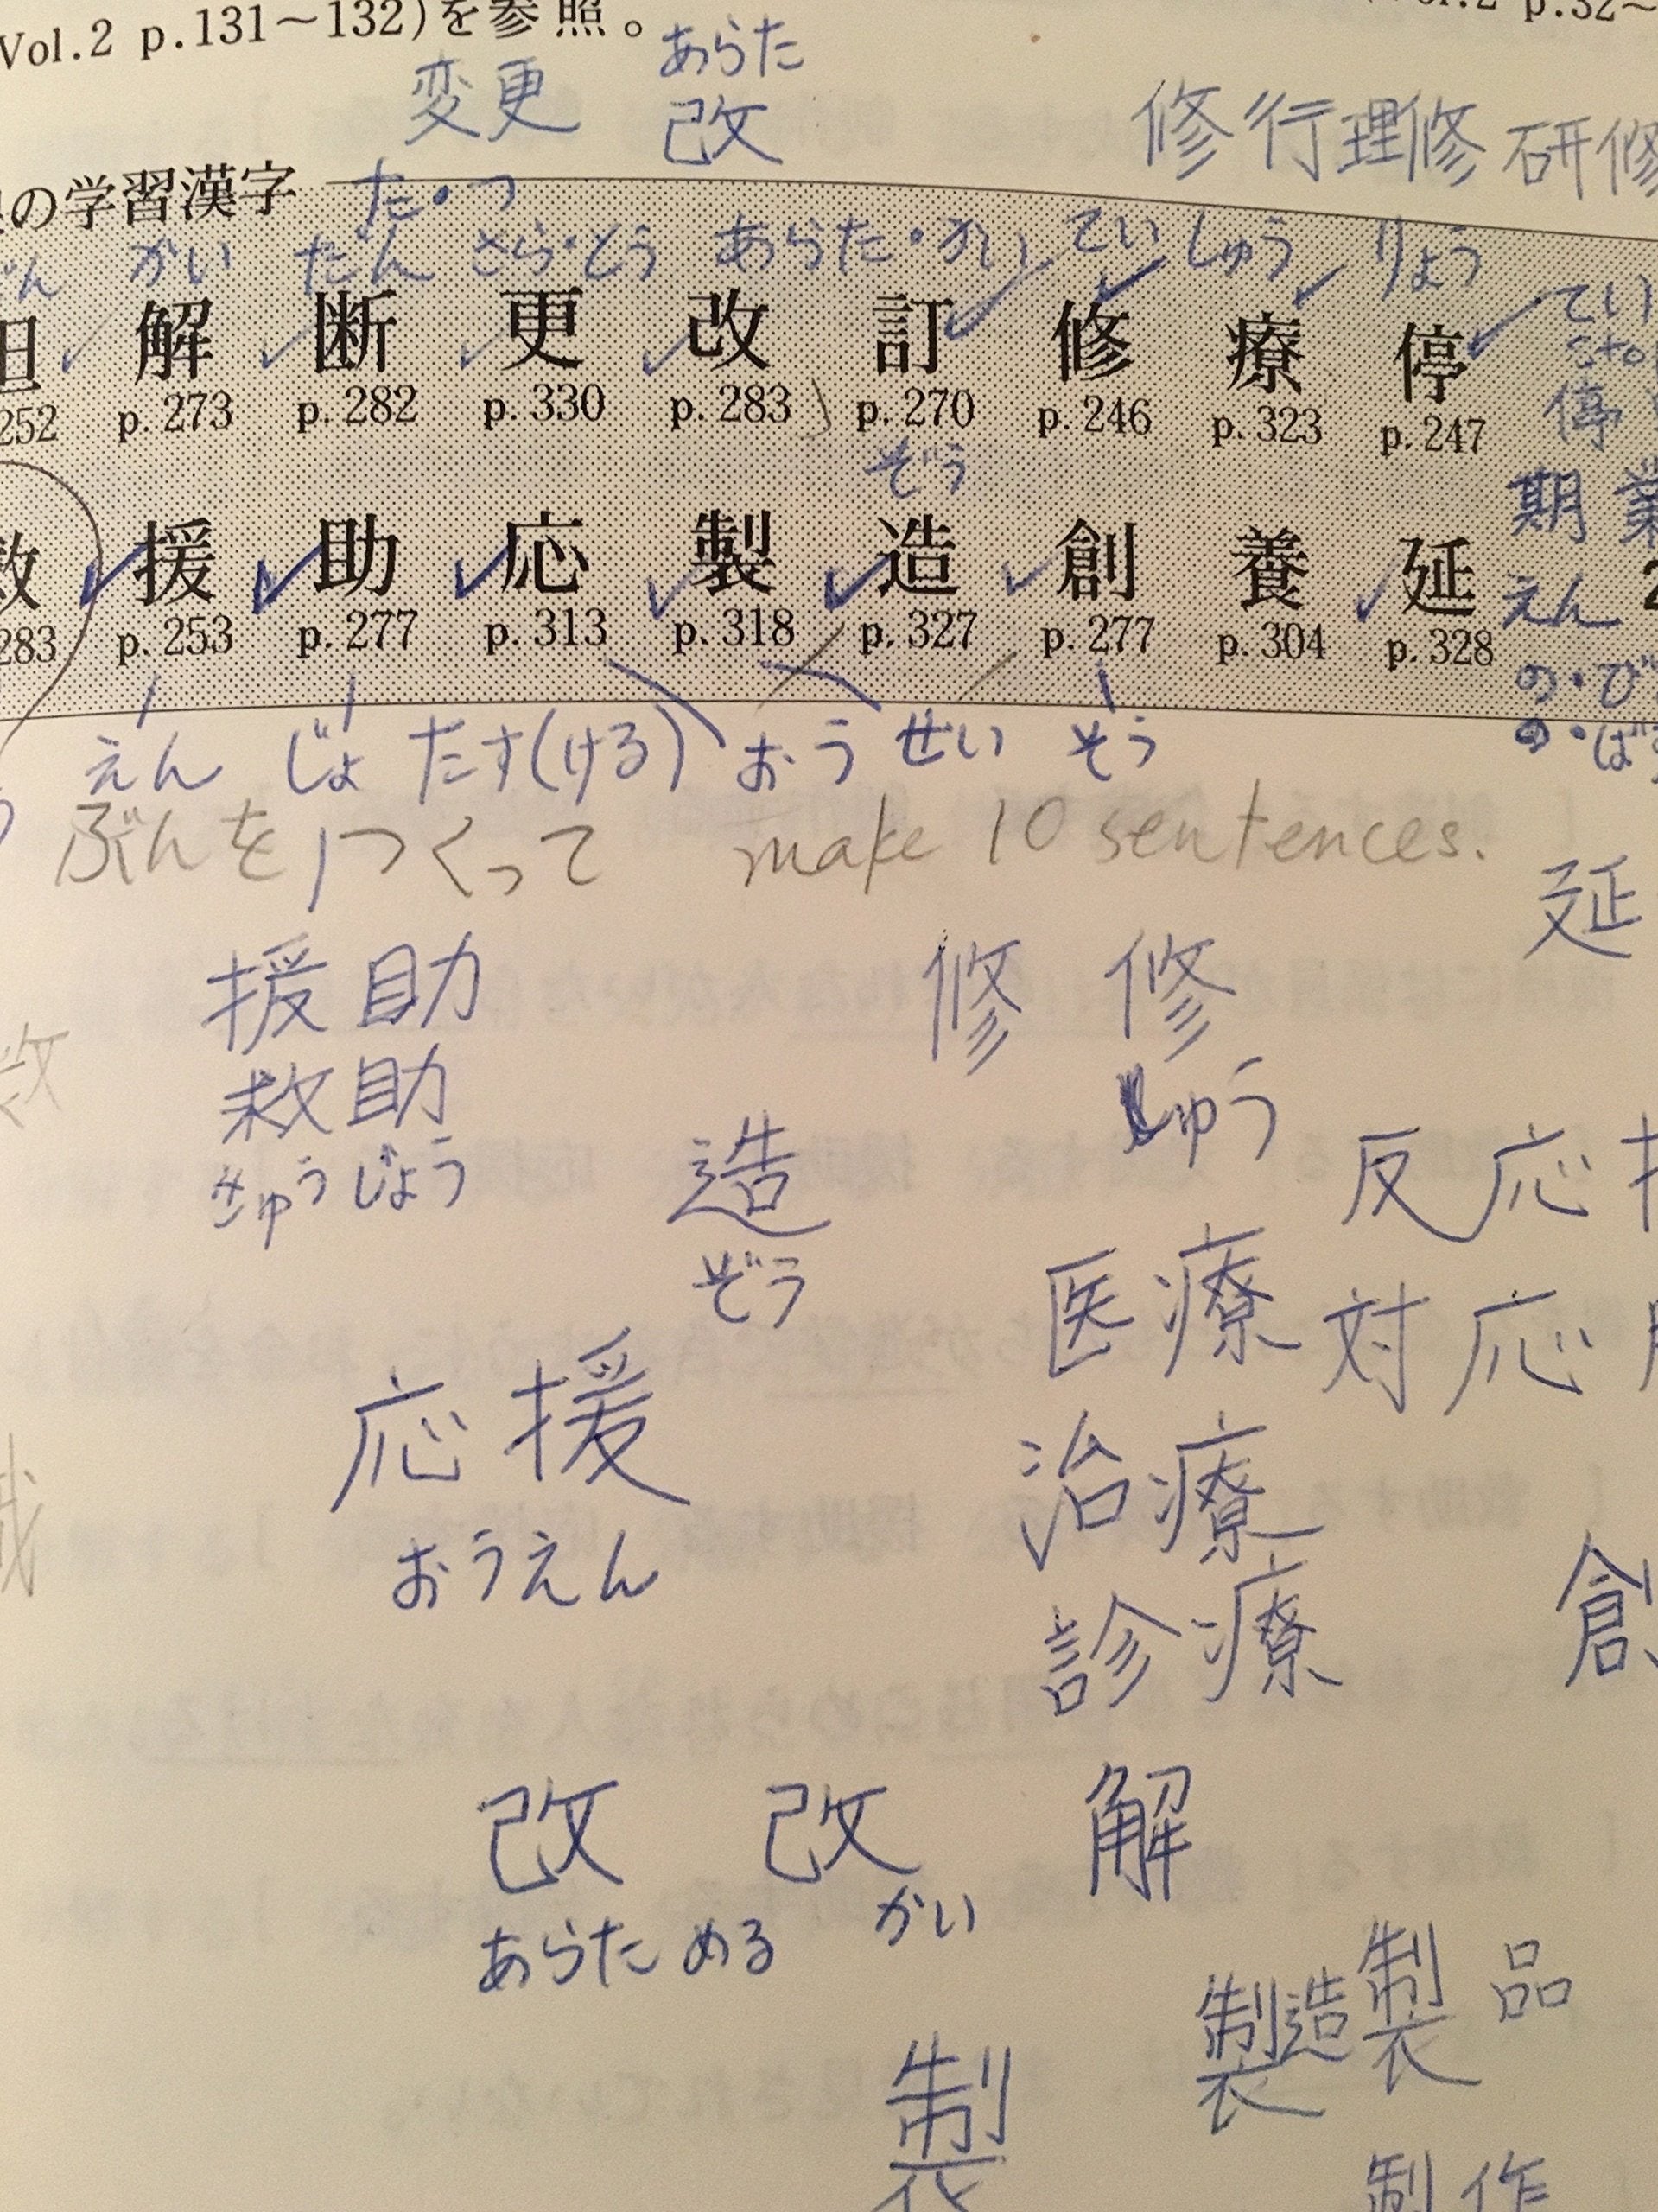 Vol.2 p.131～132)を参照。
あらた
変更 改
修行 理修 研修
の学習漢字
た・つ
かい だん さら・とう あらた・かい てい しゅう りょう
解 断 更 改 訂 修 療 停
252 p.273 p.282 p.330 p.283 p.270 p.246 p.323 p.247
てい
停
ぞう
期 業
援 助 応 製 造 創 養 延
えん
283 p.253 p.277 p.313 p.318 p.327 p.277 p.304 p.328
の・び
の・ば
えん じょ たす(ける) おう せい そう
ぶんをつくって make 10 sentences.
延
援助 修 修
救助 しゅう
きゅうじょう
造 反応
ぞう
医療 対応
応援 治療
おうえん
診療 創
改 改 解
かい
あらためる
製造 製品
製
制作